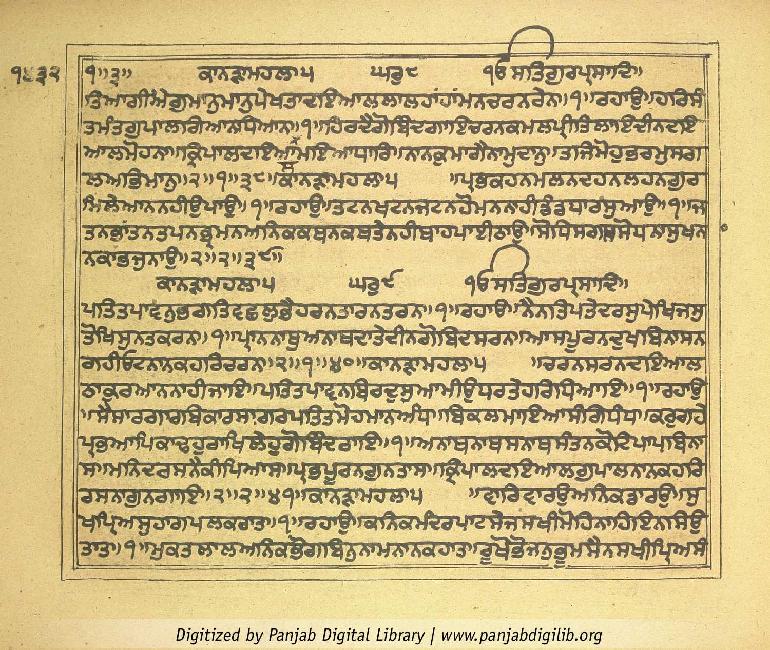 ੧੪੩੨ ੧॥੩॥ ਕਾਨੜਾਮਹਲਾ੫ ਘਰੁ੮ ੴਸਤਿਗੁਰਪ੍ਰਸਾਦਿ॥
ਤਿਆਗੀਐਗੁਮਾਨੁਮਾਨੁਪੇਖਤਾਦਇਆਲਲਾਲਹਾਂਹਾਂਮਨਚਰਨਰੇਨ॥੧॥ਰਹਾਉ॥ਹਰਿਸੰ
ਤਮੰਤਗੁਪਾਲਗਿਆਨਧਿਆਨ॥੧॥ਹਿਰਦੈਗੋਬਿੰਦਗਾਇਚਰਨਕਮਲਪ੍ਰੀਤਿਲਾਇਦੀਨਦਇ
ਆਲਮੋਹਨਾ॥ਕ੍ਰਿਪਾਲਦਇਆਮਇਆਧਾਰਿ॥ਨਾਨਕੁਮਾਗੈਨਾਮੁਦਾਨੁ॥ਤਜਿਮੋਹੁਭਰਮੁਸਗ
ਲਅਭਿਮਾਨੁ॥੨॥੧॥੩੮॥ਕਾਨੜਾਮਹਲਾ੫ ॥ਪ੍ਰਭਕਹਨਮਲਨਦਹਨਲਹਨਗੁਰ
ਮਿਲੇਆਨਨਹੀਉਪਾਉ॥੧॥ਰਹਾਉ॥ਤਟਨਖਟਨਜਟਨਹੋਮਨਨਾਹੀਡੰਡਧਾਰਸੁਆਉ॥੧॥ਜ
ਤਨਭਾਂਤਨਤਪਨਭ੍ਰਮਨਅਨਿਕਕਥਨਕਥਤੇਨਹੀਥਾਹਪਾਈਠਾਉ॥ਸੋਧਿਸਗਰਸੋਧਨਾਸੁਖਨਾ
ਨਕਾਭਜੁਨਾਉ॥੨॥੨॥੩੯॥
ਕਾਨੜਾਮਹਲਾ੫ ਘਰੁ੯ ੴਸਤਿਗੁਰਪ੍ਰਸਾਦਿ॥
ਪਤਿਤਪਾਵਨੁਭਗਤਿਵਛਲੁਭੈਹਰਨਤਾਰਨਤਰਨ॥੧॥ਰਹਾਉ॥ਨੈਨਤਿਪਤੇਦਰਸੁਪੇਖਿਜਸੁ
ਤੋਖਿਸੁਨਤਕਰਨ॥੧॥ਪ੍ਰਾਨਨਾਥਅਨਾਥਦਾਤੇਦੀਨਗੋਬਿਦਸਰਨ॥ਆਸਪੂਰਨਦੁਖਬਿਨਾਸਨ
ਗਹੀਓਟਨਾਨਕਹਰਿਚਰਨ॥੨॥੧॥੪੦॥ਕਾਨੜਾਮਹਲਾ੫ ॥ਚਰਨਸਰਨਦਇਆਲ
ਠਾਕੁਰਆਨਨਾਹੀਜਾਇ॥ਪਤਿਤਪਾਵਨਬਿਰਦੁਸੁਆਮੀਉਧਰਤੇਹਰਿਧਿਆਇ॥੧॥ਰਹਾਉ
॥ਸੈਸਾਰਗਾਰਬਿਕਾਰਸਾਗਰਪਤਿਤਮੋਹਮਾਨਅੰਧ॥ਬਿਕਲਮਾਇਆਸੰਗਿਧੰਧ॥ਕਰੁਗਹੇ
ਪ੍ਰਭਆਪਿਕਾਢਹੁਰਾਖਿਲੇਹੁਗੋਬਿੰਦਰਾਇ॥੧॥ਅਨਾਥਨਾਥਸਨਾਥਸੰਤਨਕੋਟਿਪਾਪਬਿਨਾ
ਸ॥ਮਨਿਦਰਸਨੈਕੀਪਿਆਸ॥ਪ੍ਰਭਪੂਰਨਗੁਨਤਾਸ॥ਕ੍ਰਿਪਾਲਦਇਆਲਗੁਪਾਲਨਾਨਕਹਰਿ
ਰਸਨਾਗੁਨਗਾਇ॥੨॥੨॥੪੧॥ਕਾਨੜਾਮਹਲਾ੫ ॥ਵਾਰਿਵਾਰਉਅਨਿਕਡਾਰਉ॥ਸੁ
ਖੁਪ੍ਰਿਅਸੁਹਾਗਪਲਕਰਾਤ॥੧॥ਰਹਾਉ॥ਕਨਿਕਮੰਦਰਪਾਟਸੇਜਸਖੀਮੋਹਿਨਾਹਿਇਨਸਿਉ
ਤਾਤ॥੧॥ਮੁਕਤਲਾਲਅਨਿਕਭੋਗਬਿਨੁਨਾਮਨਾਨਕਹਾਤ॥ਰੂਖੋਭੋਜਨੁਭੂਮਸੈਨਸਖੀਪ੍ਰਿਅਸੰ
Digitized by Panjab Digital Library | www.panjabdigilib.org